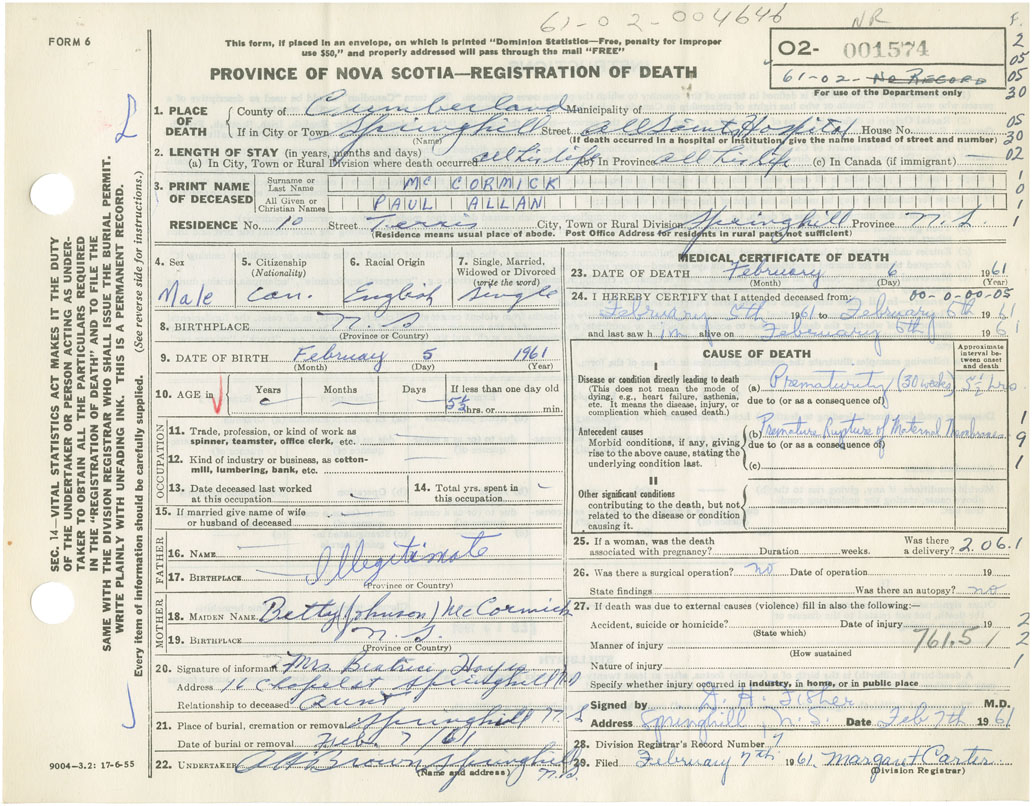 61-02-004646
NR
FORM 6
This form, if placed in an envelope, on which is printed "Dominion Statistics—Free, penalty for improper
use $50," and properly addressed will pass through the mail "FREE"
02- 001574
61-02- No Record
For use of the Department only
PROVINCE OF NOVA SCOTIA—REGISTRATION OF DEATH
F.
2
05
05
30
1. PLACE OF DEATH
County of Cumberland Municipality of
If in City or Town Springhill Street All Saints Hospital House No.
(Name) (If death occurred in a hospital or institution, give the name instead of street and number)
05
30
02
2. LENGTH OF STAY (in years, months and days)
(a) In City, Town or Rural Division where death occurred all his life (b) In Province all his life (c) In Canada (if immigrant) —
3. PRINT NAME OF DECEASED
Surname or Last Name McCORMICK
All Given or Christian Names PAUL ALLAN
1
0
1
1
RESIDENCE No. 10 Street Terris City, Town or Rural Division Springhill Province N.S.
(Residence means usual place of abode. Post Office Address for residents in rural parts not sufficient)
4. Sex
Male
5. Citizenship (Nationality)
Can.
6. Racial Origin
English
7. Single, Married, Widowed or Divorced (write the word)
Single
8. BIRTHPLACE N.S
(Province or Country)
9. DATE OF BIRTH February 5 1961
(Month) (Day) (Year)
10. AGE in
Years
Months
Days
If less than one day old
5½ hrs. or min.
OCCUPATION
11. Trade, profession, or kind of work as
spinner, teamster, office clerk, etc.
12. Kind of industry or business, as cotton-
mill, lumbering, bank, etc.
13. Date deceased last worked
at this occupation
14. Total yrs. spent in
this occupation
15. If married give name of wife
or husband of deceased
FATHER
16. NAME
Illegitimate
17. BIRTHPLACE
(Province or Country)
MOTHER
18. MAIDEN NAME Betty (Johnson) McCormick
19. BIRTHPLACE N.S.
(Province or Country)
20. Signature of informant Mrs Beatrice Hayes
Address 16 Chapel St Springhill N.S
Relationship to deceased aunt
21. Place of burial, cremation or removal Springhill N.S
Date of burial or removal Feb. 7/61
22. UNDERTAKER A H Brown Springhill
(Name and address) N.S.
MEDICAL CERTIFICATE OF DEATH
23. DATE OF DEATH February 6 1961
(Month) (Day) (Year)
00-0-00-05
24. I HEREBY CERTIFY that I attended deceased from:
February 5th 1961 to February 6th 1961
and last saw him alive on February 6th 1961
CAUSE OF DEATH
Approximate interval be-tween onset and death
I
Disease or condition directly leading to death
(This does not mean the mode of
dying, e.g., heart failure, asthenia,
etc. It means the disease, injury, or
complication which caused death.)
(a) Prematurity (30 weeks) 5½ hrs
due to (or as a consequence of)
Antecedent causes
Morbid conditions, if any, giving
rise to the above cause, stating the
underlying condition last.
(b) Premature Rupture of Maternal Membranes
due to (or as a consequence of)
(c)
1
9
1
II
Other significant conditions
contributing to the death, but not
related to the disease or condition
causing it.
25. If a woman, was the death
associated with pregnancy? Duration weeks. Was there a delivery?
2.06.1
26. Was there a surgical operation? no Date of operation 19
State findings Was there an autopsy? no
27. If death was due to external causes (violence) fill in also the following:—
Accident, suicide or homicide? Date of injury 19
(State which)
Manner of injury
(How sustained
761.5 1
2
2
1
Nature of injury
Specify whether injury occurred in industry, in home, or in public place
Signed by D. A. Fisher M.D.
Address Springhill, N.S. Date Feb 7th 1961
28. Division Registrar's Record Number 7
29. Filed February 7th 1961 Margaret Carter
(Division Registrar)
SEC. 14—VITAL STATISTICS ACT MAKES IT THE DUTY
OF THE UNDERTAKER OR PERSON ACTING AS UNDER-
TAKER TO OBTAIN ALL THE PARTICULARS REQUIRED
IN THE "REGISTRATION OF DEATH" AND TO FILE THE
SAME WITH THE DIVISION REGISTRAR WHO SHALL ISSUE THE BURIAL PERMIT.
WRITE PLAINLY WITH UNFADING INK. THIS IS A PERMANENT RECORD.
Every item of information should be carefully supplied. (See reverse side for instructions.)
9004—3.2: 17-6-55